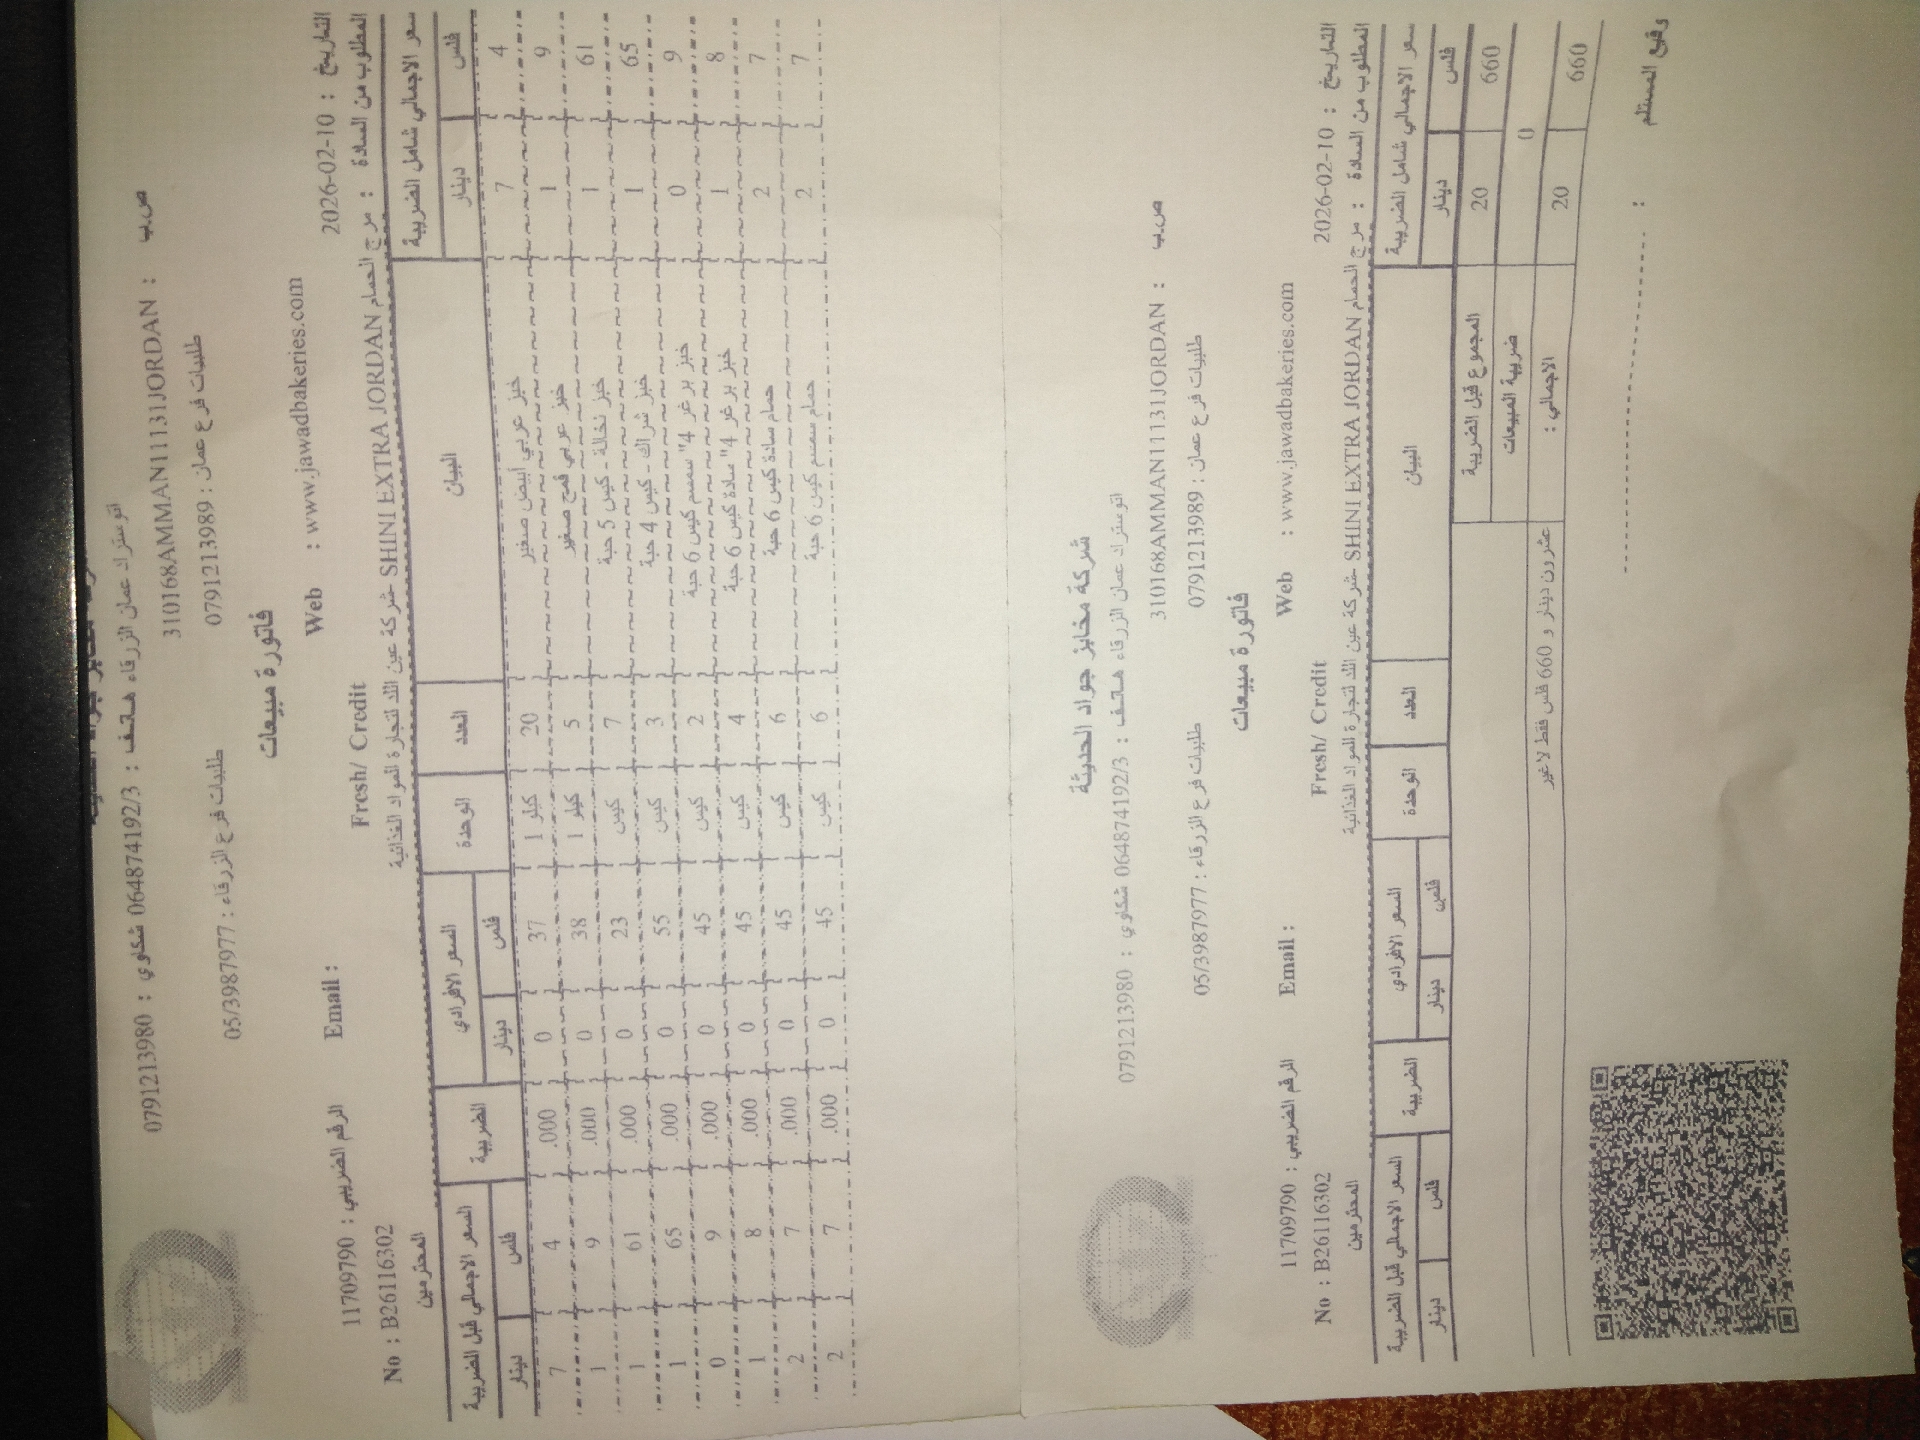 اتوستراد عمان الزرقاء هاتف : 064874192/3 شكاوي : 0791213980
ص.ب : 310168AMMAN11131JORDAN
طلبيات فرع عمان : 0791213989 طلبيات فرع الزرقاء : 05/3987977
فاتورة مبيعات
التاريخ : 2026-02-10 Web : www.jawadbakeries.com Email : الرقم الضريبي : 11709790
Fresh/ Credit No : B26116302
المطلوب من السادة : مرج الحمام SHINI EXTRA JORDAN شركة عين اللد لتجارة المواد الغذائية المحترمين
سعر الاجمالي شامل الضريبة البيان العدد الوحدة السعر الافرادي الضريبة السعر الاجمالي قبل الضريبة
فلس دينار فلس دينار فلس دينار
4 7 خبز عربي أبيض صغير 20 كيلو 1 37 0 .000 4 7
9 1 خبز عربي قمح صغير 5 كيلو 1 38 0 .000 9 1
61 1 خبز نخالة - كيس 5 حبة 7 كيس 23 0 .000 61 1
65 1 خبز شراك - كيس 4 حبة 3 كيس 55 0 .000 65 1
9 0 خبز برغر 4" سمسم كيس 6 حبة 2 كيس 45 0 .000 9 0
8 1 خبز برغر 4" سادة كيس 6 حبة 4 كيس 45 0 .000 8 1
7 2 حمام سادة كيس 6 حبة 6 كيس 45 0 .000 7 2
7 2 حمام سمسم كيس 6 حبة 6 كيس 45 0 .000 7 2
شركة مخابز جواد الحديثة
اتوستراد عمان الزرقاء هاتف : 064874192/3 شكاوي : 0791213980
ص.ب : 310168AMMAN11131JORDAN
طلبيات فرع عمان : 0791213989 طلبيات فرع الزرقاء : 05/3987977
فاتورة مبيعات
التاريخ : 2026-02-10 Web : www.jawadbakeries.com Email : الرقم الضريبي : 11709790
Fresh/ Credit No : B26116302
المطلوب من السادة : مرج الحمام SHINI EXTRA JORDAN شركة عين اللد لتجارة المواد الغذائية المحترمين
سعر الاجمالي شامل الضريبة البيان العدد الوحدة السعر الافرادي الضريبة السعر الاجمالي قبل الضريبة
فلس دينار فلس دينار فلس دينار
660 20 المجموع قبل الضريبة
0 ضريبة المبيعات
660 20 الاجمالي : عشرون دينار و 660 فلس فقط لا غير
المستلم :